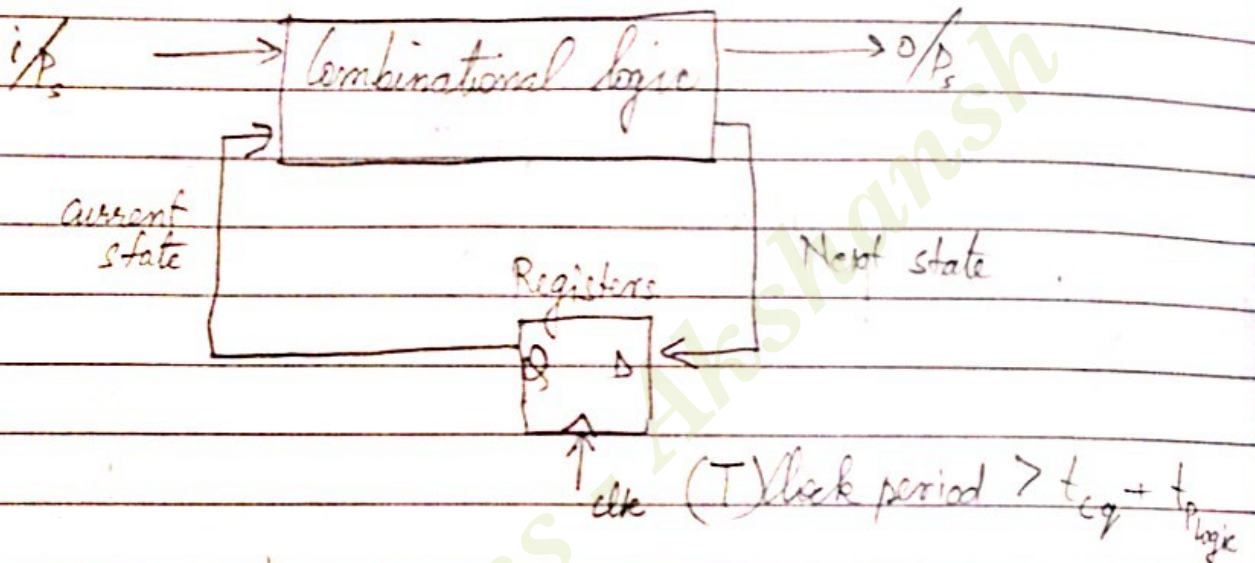 i/Ps
Combinational logic
O/Ps
current
state
Next state
Registers
Q D
clk
(T) Clock period > tcq + tplogic
Akshansh